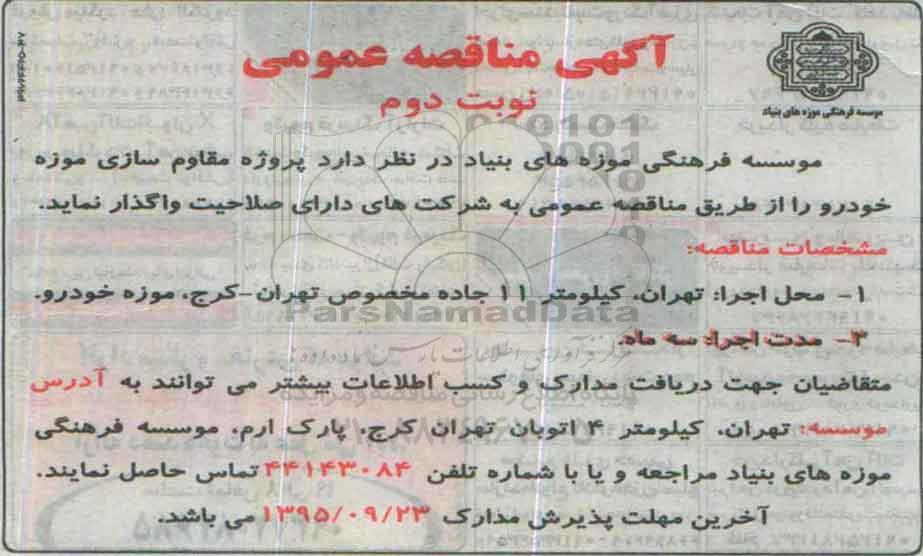 آگهی مناقصه عمومی
نوبت دوم
موسسه فرهنگی موزه های بنیاد
موسسه فرهنگی موزه های بنیاد در نظر دارد پروژه مقاوم سازی موزه
خودرو را از طریق مناقصه عمومی به شرکت های دارای صلاحیت واگذار نماید.
مشخصات مناقصه:
۱- محل اجرا: تهران، کیلومتر ۱۱ جاده مخصوص تهران-کرج، موزه خودرو.
ParsNamadData
۳- مدت اجرا: سه ماه.
متقاضیان جهت دریافت مدارک و کسب اطلاعات بیشتر می توانند به آدرس
موسسه: تهران، کیلومتر ۴ اتوبان تهران کرج، پارک ارم، موسسه فرهنگی
موزه های بنیاد مراجعه و یا با شماره تلفن ۴۴۱۴۳۰۸۴ تماس حاصل نمایند.
آخرین مهلت پذیرش مدارک ۱۳۹۵/۰۹/۲۳ می باشد.